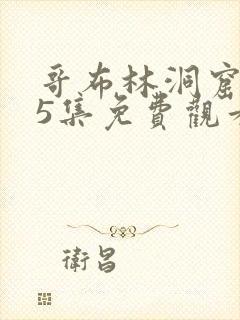 哥布林洞窟
5集免費觀
衛昌